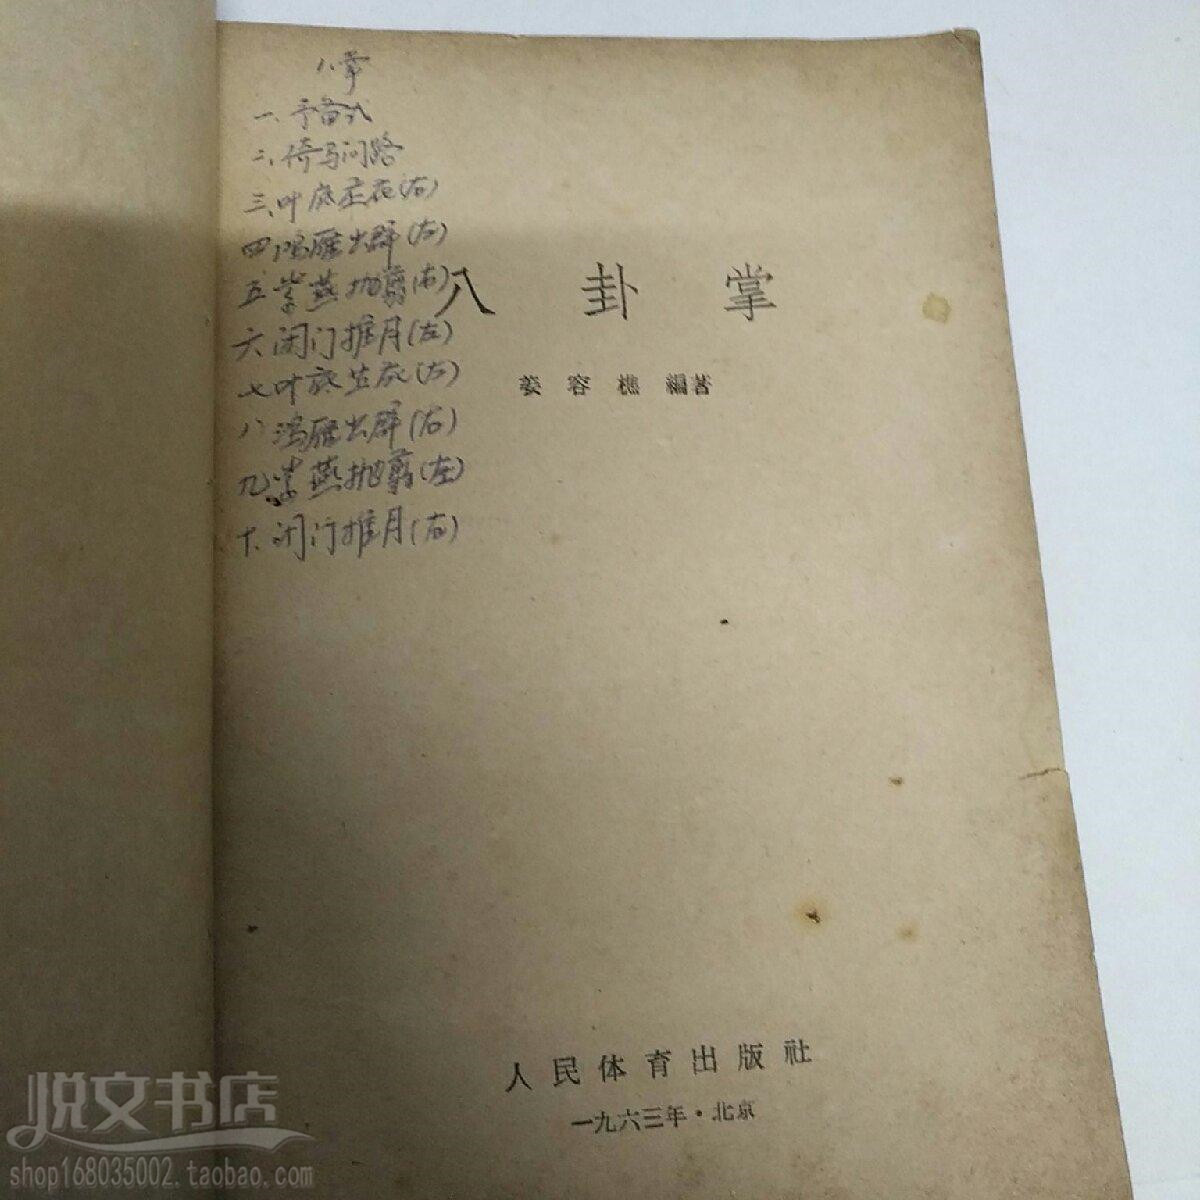 八掌
一、予备式
二、倚马问路
三、叶底庄花(右)
四、鸿雁出群(左)
五、紫燕抛剪(右)
六、闭门推月(左)
七、叶底庄花(左)
八、鸿雁出群(右)
九、紫燕抛剪(左)
十、闭门推月(右)
八卦掌
姜容樵 編著
人民体育出版社
一九六三年·北京
悦文书店
shop168035002.taobao.com